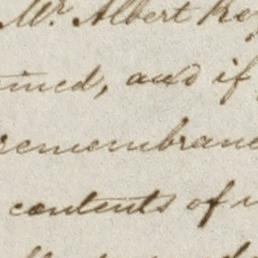 Mr. Albert Ke
ined, and if
remembranc
contents of